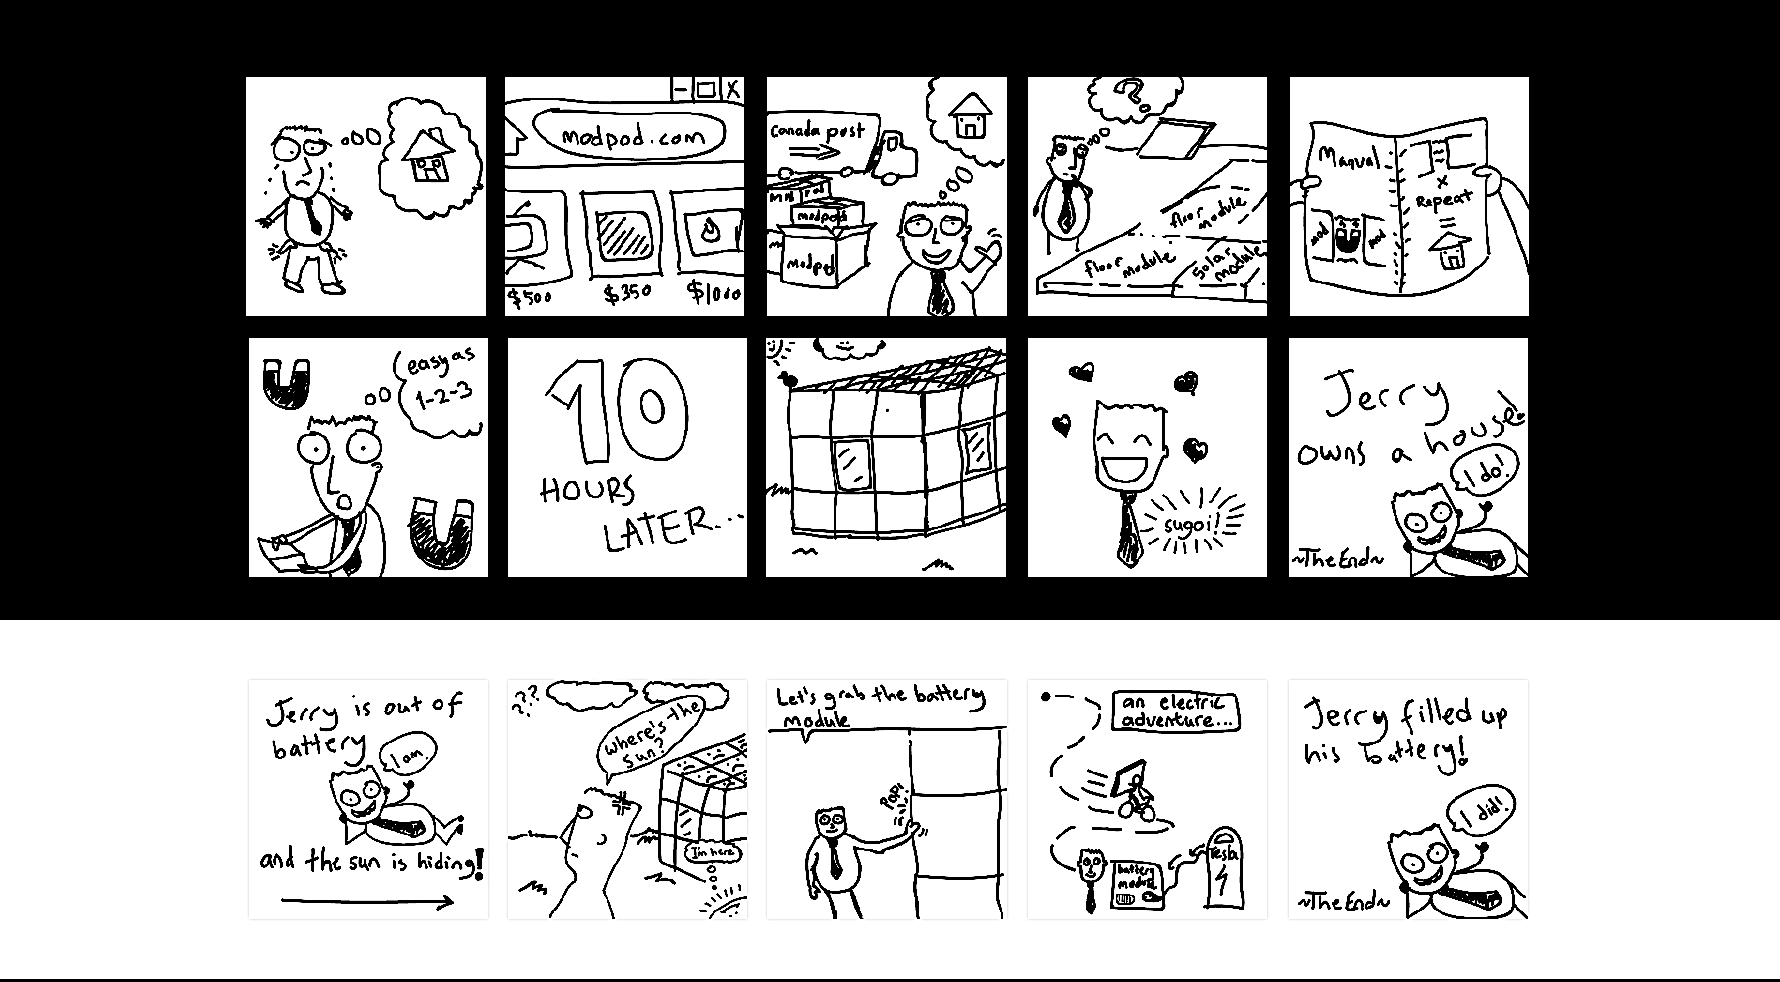 modpod.com
$500
$350
$1000
Canada post
mod
pod
modpod
modpod
?
floor module
floor module
solar module
Manual
mod
mod
x
Repeat
=
easy as
1-2-3
10
HOURS
LATER...
sugoi!
Jerry
owns a house!
I do!
~The End~
Jerry is out of
battery
I am.
and the sun is hiding!
???
where's the
sun?
I'm here
Let's grab the battery
module
POP!
an electric
adventure...
battery
module
Tesla
Jerry filled up
his battery!
I did!
~The End~